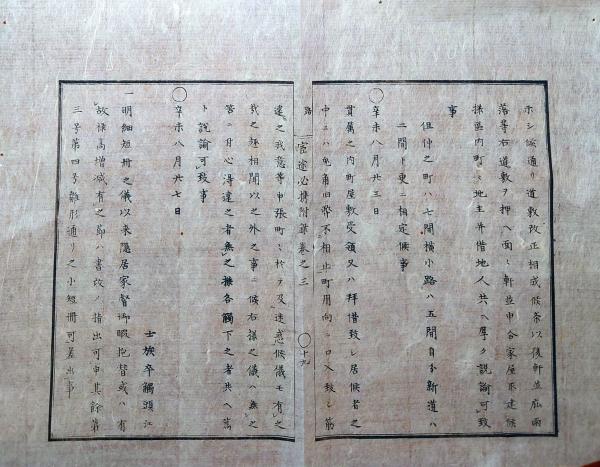 ホシ候通り道敷改正相成候条以後軒並庇雨
落等右道敷ヲ押ヘ面々軒並申合家屋取建候
様区内町々地主并借地人共ヘ厚ク説諭可致
事
但仲之町ハ七間横小路ハ五間自分新道ハ
二間ト更ニ相定候事
○辛未八月廿三日
貫属之内町屋敷受領又ハ拝借致し居候者之
中ニハ兎角旧弊不相止町用向ニ口入致し筋
路 官途必携附録巻之三 ○十九
違之我意等申張町々ヲ及迷惑候儀モ有之
哉之趣相聞以之外之事ニ候右様之儀ハ無之
筈ニ付心得違之者無之様各觸下之者共ヘ篤
ト説諭可致事
○辛未八月廿七日
士族卒觸頭江
一明細短冊之儀以来隠居家督御暇抱替或ハ有
故禄高増減有之節ハ書改ノ指出可申其餘第
三号第四号雛形通リ之小短冊可差出事